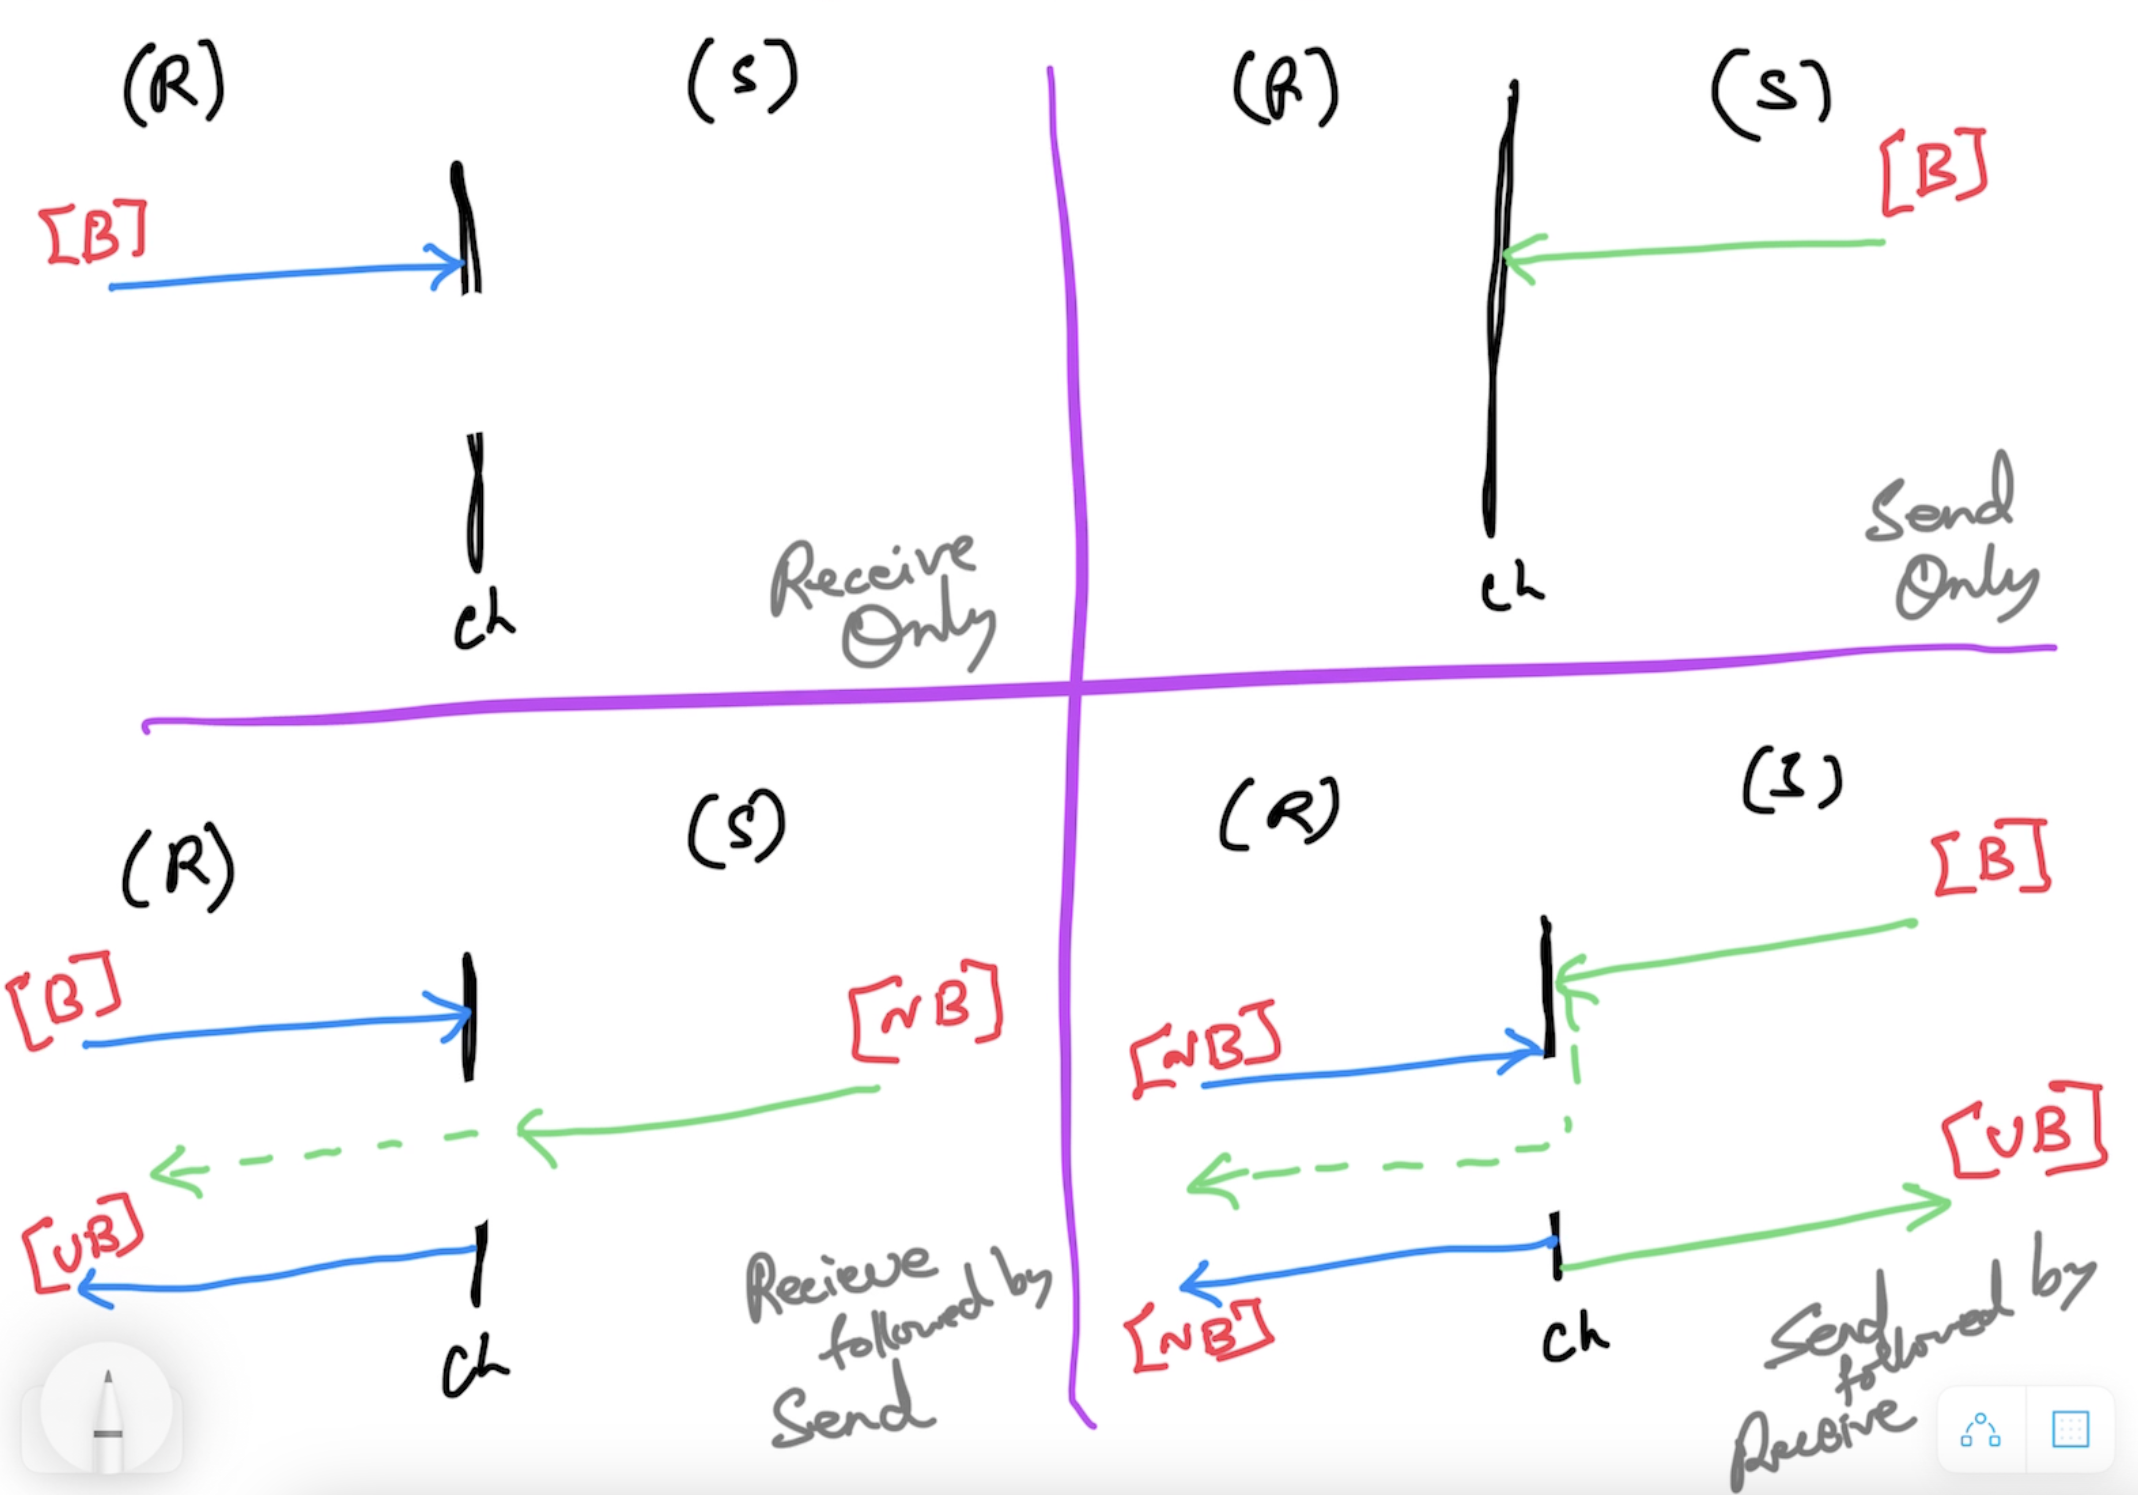 (R)
(S)
[B]
ch
Receive
Only
(R)
(S)
[B]
ch
Send
Only
(R)
(S)
[B]
[NB]
[UB]
ch
Recieve
followed by
Send
(R)
(S)
[B]
[NB]
[UB]
[NB]
ch
Send
followed by
Receive